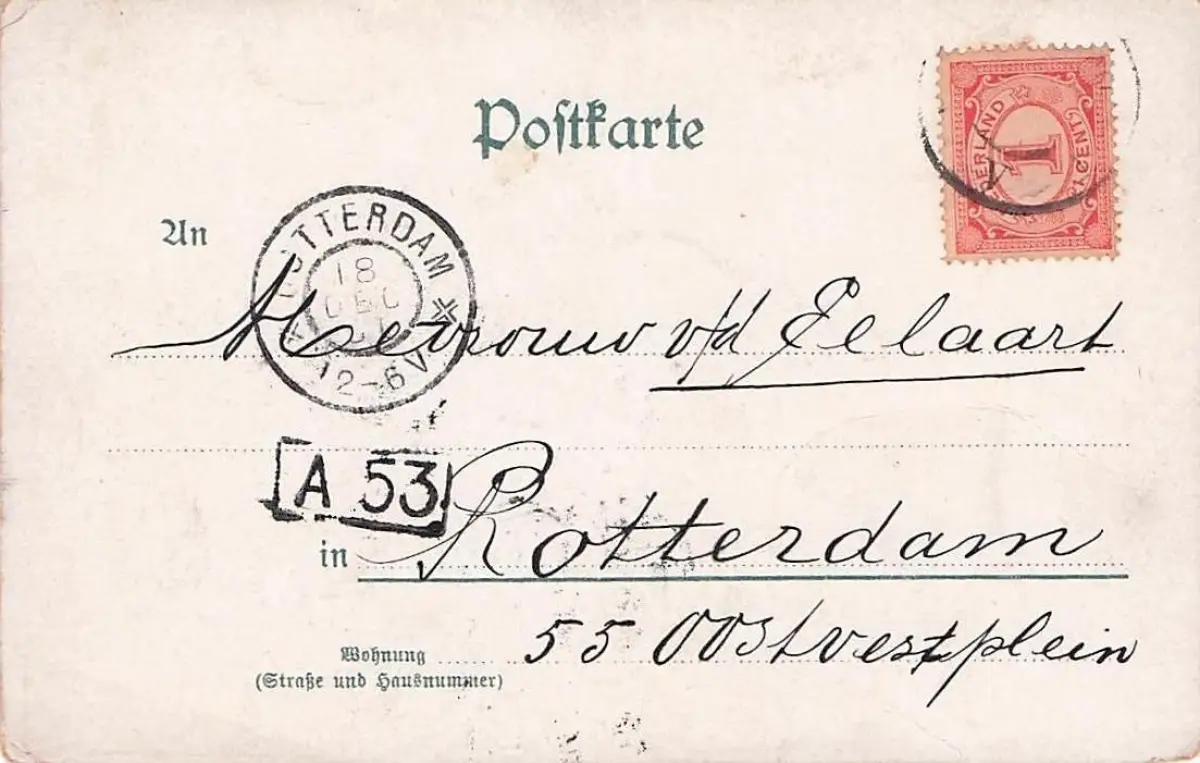 Postkarte
NEDERLAND
1 CENT
1
An
ROTTERDAM
18
DEC
12-6V
Mevrouw v/d Jelaart
A 53
in Rotterdam
Wohnung 55 Oostvestplein
(Straße und Hausnummer)